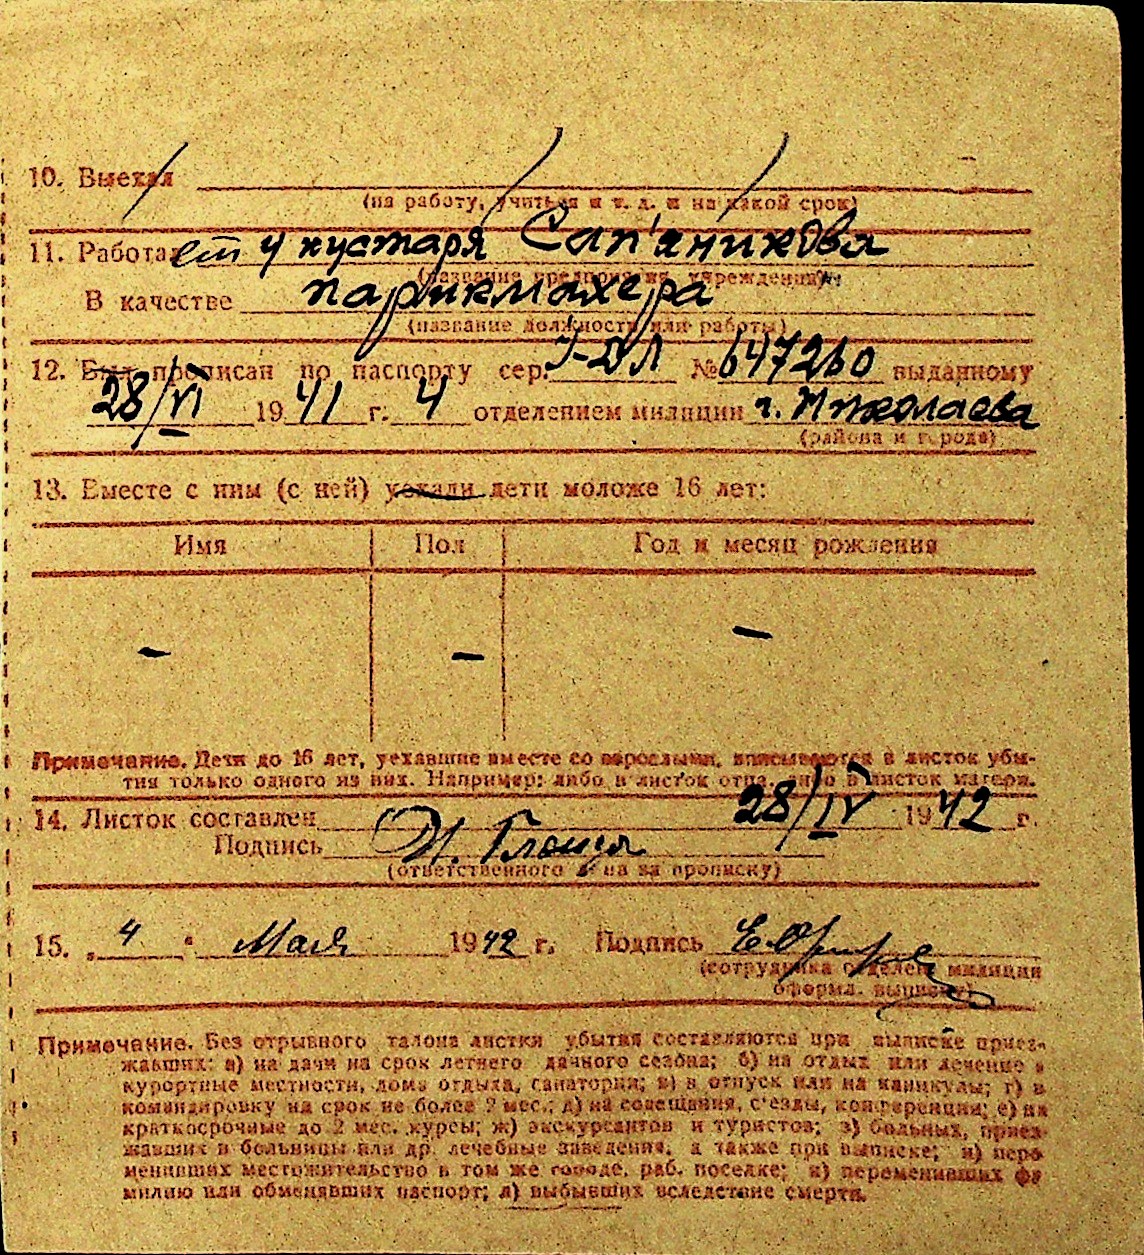 10. Выехал
(на работу, учиться и т. д. и на какой срок)
11. Работает у кустаря Сап'яникова
(название предприятия, учреждения)
В качестве парикмахера
(название должности или работы)
12. Был прописан по паспорту сер. I-ДЛ № 647260 выданному
28/VI 1941 г. 4 отделением милиции г. Николаева
(района и города)
13. Вместе с ним (с ней) уехали дети моложе 16 лет:
Имя Пол Год и месяц рождения
— — —
Примечание. Дети до 16 лет, уехавшие вместе со взрослыми, вписываются в листок убы-
тия только одного из них. Например: либо в листок отца, либо в листок матери.
14. Листок составлен 28/IV 1942 г.
Подпись И.
(ответственного за прописку)
15. „4" Мая 1942 г. Подпись
(сотрудника отделен. милиции
оформл. выписку)
Примечание. Без отрывного талона листки убытия составляются при выписке приез-
жавших: а) на дачи на срок летнего дачного сезона; б) на отдых или лечение в
курортные местности, дома отдыха, санатории; в) в отпуск или на каникулы; г) в
командировку на срок не более 2 мес.; д) на совещания, с'езды, конференции; е) на
краткосрочные до 2 мес. курсы; ж) экскурсантов и туристов; з) больных, приез-
жавших в больницы или др. лечебные заведения, а также при выписке; и) пере-
менивших местожительство в том же городе, раб. поселке; к) переменивших фа-
милию или обменявших паспорт; л) выбывших вследствие смерти.